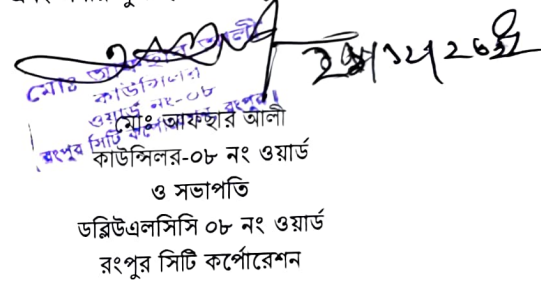 মোঃ আফছার আলী
কাউন্সিলর
ওয়ার্ড নং-০৮
রংপুর সিটি কর্পোরেশন, রংপুর।
মোঃ আফছার আলী
কাউন্সিলর-০৮ নং ওয়ার্ড
ও সভাপতি
ডব্লিউএলসিসি ০৮ নং ওয়ার্ড
রংপুর সিটি কর্পোরেশন